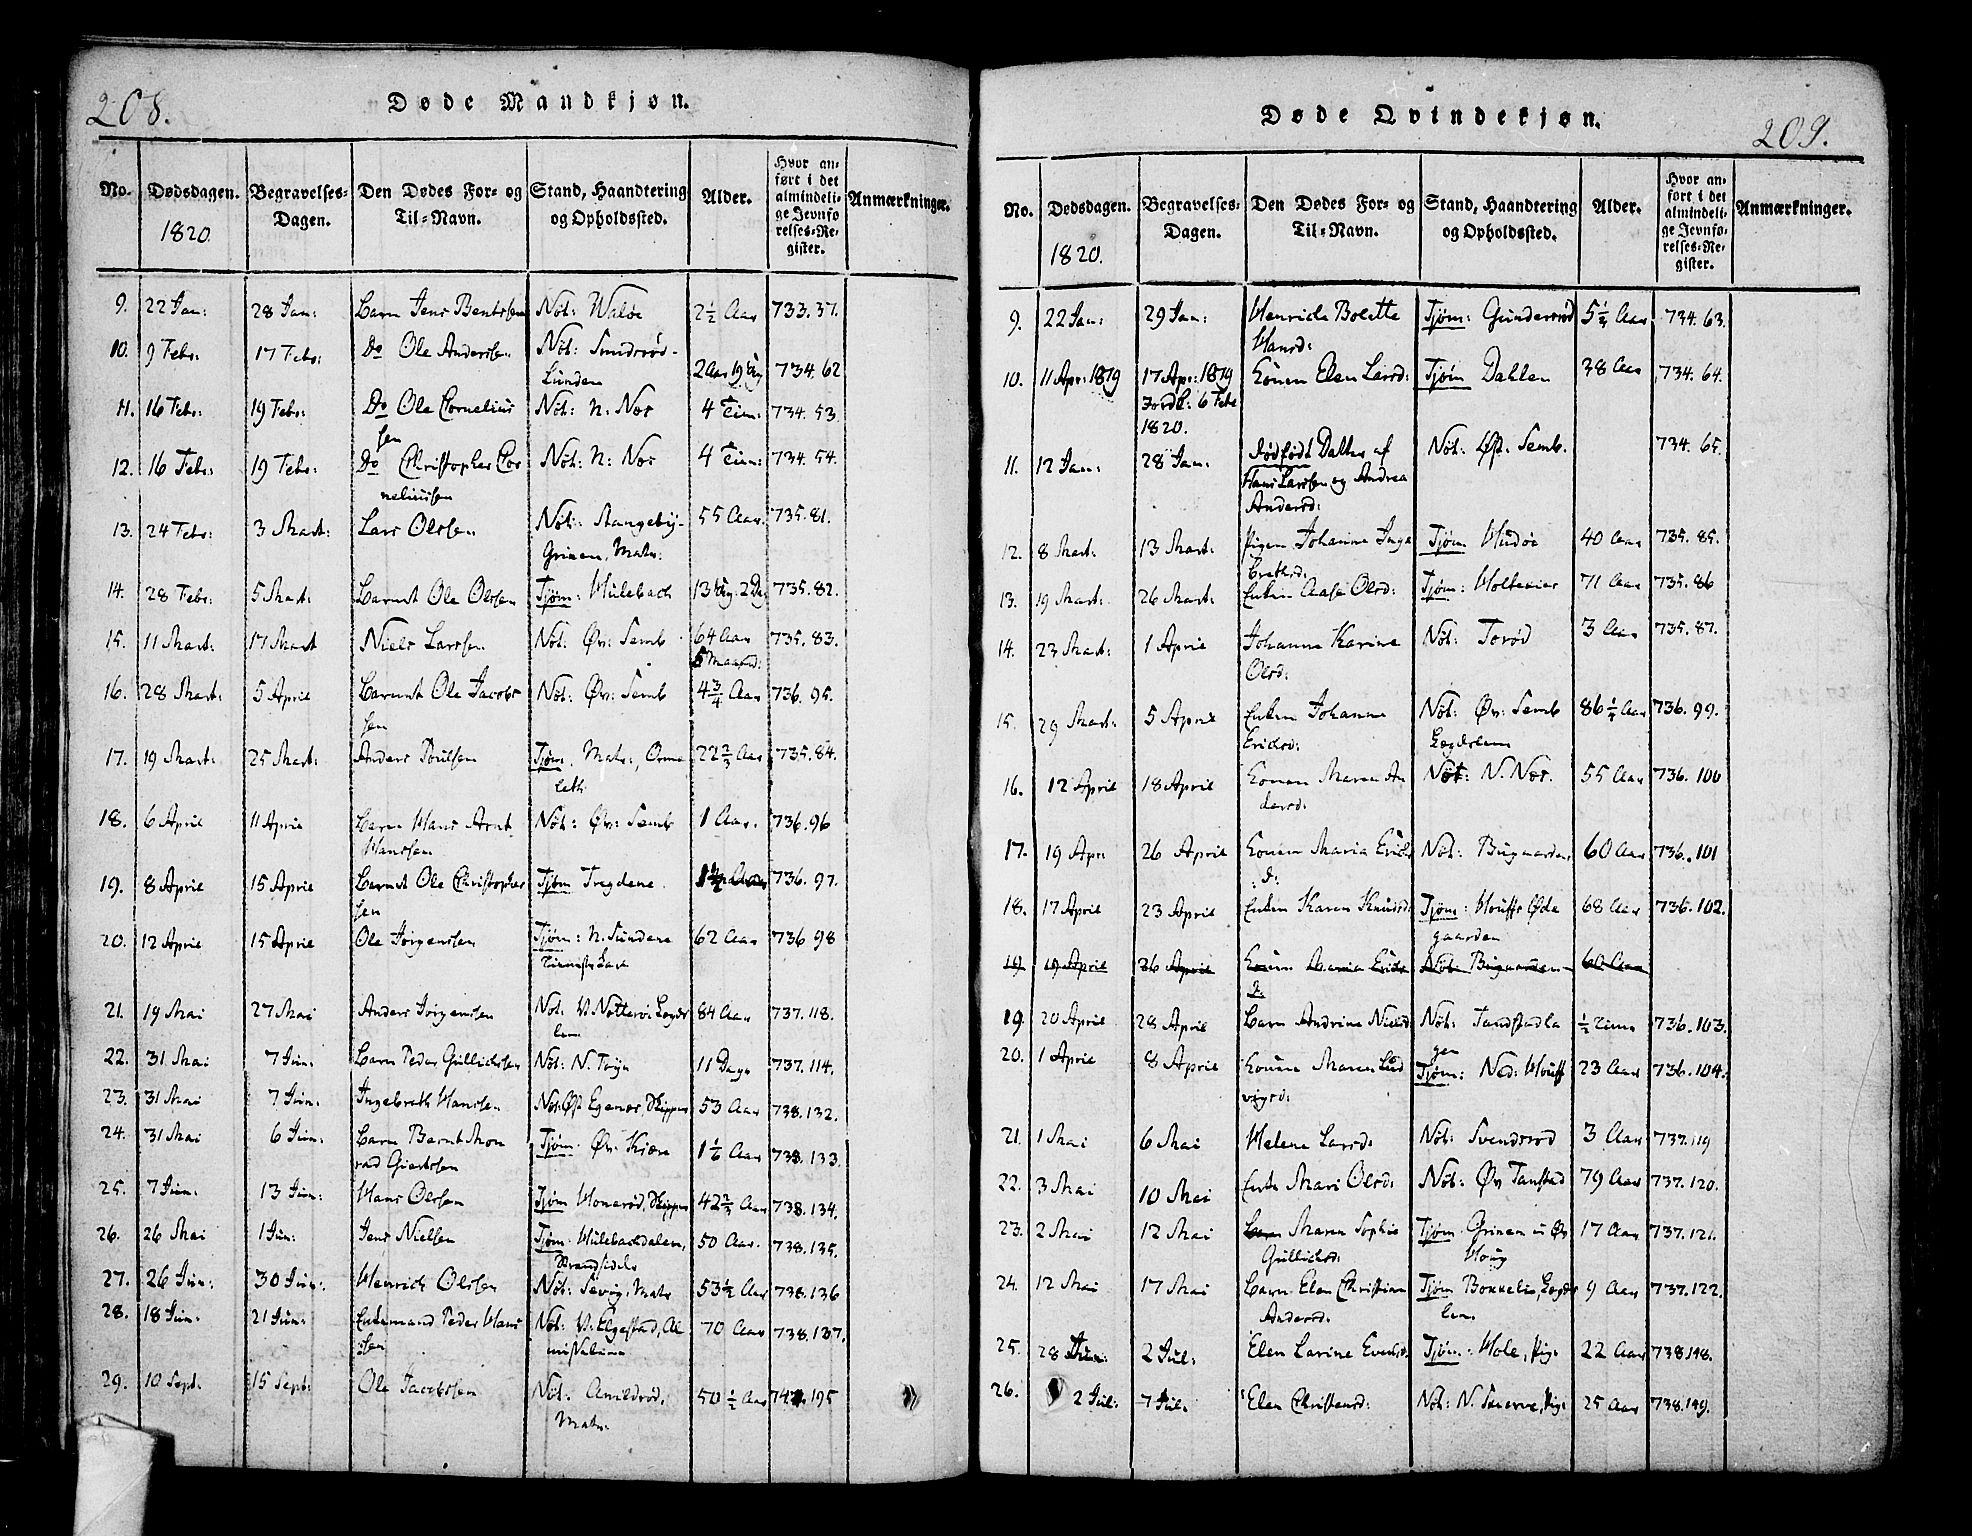 208.
Døde Mandkjøn.
No. Dødsdagen. Begravelses-Dagen. Den Dødes For- og Til-Navn. Stand, Haandtering og Opholdssted. Alder. Hvor anført i det almindelige Jevnførelses-Register. Anmærkninger.
1820.
9. 22 Jan: 28 Jan: Barn Jens Berntssen Nöt: Waløe 2½ Aar 733. 37.
10. 9 Febr: 17 Febr: Do Ole Anderssen Nöt: Smidsrød-Lunden 2 Aar 19 Ug 734. 62
11. 16 Febr: 19 Febr: Do Ole Corneliussen Nöt: N: Nes 4 Tim: 734. 53.
12. 16 Febr: 19 Febr: Do Christopher Corneliussen Nöt: N: Nes 4 Tim: 734. 54.
13. 24 Febr: 3 Mart: Lars Olssen Nöt: Stangeby-Grinen, Matr: 55 Aar. 735. 81.
14. 28 Febr: 5 Mart: Barnet Ole Olssen Tjøm: Hulebach 13 Ug. 2 Dag 735. 82.
15. 11 Mart: 17 Mart Niels Larssen Nöt: Øv: Semb 64 Aar 5 Maaned: 735. 83.
16. 28 Mart: 5 April Barnet Ole Jacobssen Nöt: Øv: Semb 4¾ Aar 736. 95.
17. 19 Mart: 25 Mart: Anders Poulsen Tjøm. Matr:, Ormeleth: 22⅔ Aar 735. 84.
18. 6 April 11 April Barn Hans Arnt Hanssen Nöt: Øv: Semb 1 Aar. 736. 96
19. 8 April 15 April Barnet Ole Christophersen Tjøm Tregdene. 1½ Aar 736. 97.
20. 12 April 15 April Ole Jörgenssen Tjøm: N. Sundene 62 Aar 736 98
21. 19 Mai 27 Mai Anders Jörgenssen Nöt: V. Nötterøe Lægdslem 84 Aar 737. 118.
22. 31 Mai 7 Jun: Barn Peder Gullichssen Nöt: N. Teÿn 11 Dage 737. 114.
23. 31 Mai 7 Jun: Ingebreth Hanssen Nöt: Øst Egenes, Skipper 53 Aar 738. 132.
24. 31 Mai 6 Jun: Barn Bernt Monrad Giertssen Tjøm. Øv: Kjære 1⅙ Aar 738. 133.
25. 7 Jun: 13 Jun: Hans Olssen Tjøm Honerød, Skipper 42⅔ Aar 738. 134.
26. 26 Mai 1 Jun: Jens Nielsen Tjøm. Hulebackdalen, Strandsidder 50 Aar. 738. 135.
27. 26 Jun: 30 Jun: Henrich Olssen Nöt: Sevig, Matr 53½ Aar 738. 136
28. 18 Jun: 21 Jun: Enkemand Peder Hanssen Nöt: V: Elgestad, Almisselem 70 Aar 738. 137.
29. 10 Sept: 15 Sept: Ole Jacobssen Nöt: Arnildrød, Matr. 50½ Aar 742. 195
Døde Qvindekjøn.
209.
No. Dødsdagen. Begravelses-Dagen. Den Dødes For- og Til-Navn. Stand, Haandtering og Opholdssted. Alder. Hvor anført i det almindelige Jevnførelses-Register. Anmærkninger.
1820.
9. 22 Jan: 29 Jan: Henricke Bolette Hansd: Tjøm: Gundersrød 5¼ Aar 734. 63.
10. 11 Apr: 1819 17 Apr: 1819 Jordk: 6 Febr 1820. Konen Elen Larsd: Tjøm Dahlen 38 Aar 734. 64.
11. 12 Jan: 28 Jan: Dødfødt Datter af Hans Larssen og Andrea Andersd: Nöt: Øst: Semb. 734. 65.
12. 8 Mart: 13 Mart: Pigen Johanne Inge Brethsd: Tjøm. Hudøe 40 Aar 735. 85.
13. 19 Mart: 26 Mart: Enken Aase Olsd: Tjøm: Holtekier 71 Aar 735. 86
14. 23 Mart: 1 April Johanne Karine Olsd: Nöt: Torød 3 Aar 735. 87.
15. 29 Mart: 5 April Enken Johanne Ericksd: Nöt: Øv: Semb Lægdslem 86¼ Aar 736. 99.
16. 12 April 18 April Konen Maren Andersd: Nöt: N. Nes. 55 Aar 736. 100
17. 19 Apr: 26 April Konen Maria Ericksd: Nöt: Bugaarden 60 Aar 736. 101
18. 17 April 23 April Enken Karen Knudsd: Tjøm: Houffs Ødegaarden 68 Aar 736. 102.
19 19 April 26 April Konen Maria Ericksd. Nöt. Bugaarden 60 Aar
19. 20 April 28 April Barn Andrine Nielsd: Nöt: Tandstadhagen ½ Time 736. 103.
20. 1 April 8 April Konen Maren Ludvigsd: Tjøm: Ned: Houff 23 Aar 736. 104.
21. 1 Mai 6 Mai Helene Larsd: Nöt: Svendsrød 3 Aar 737. 119
22. 3 Mai 10 Mai Enke Mari Olsd: Nöt: Øv Tanstad 79 Aar 737. 120.
23. 2 Mai 12 Mai Maren Sophie Gullichsd: Tjøm. Grinen u: Øv Houg 17 Aar 737. 121.
24. 12 Mai 17 Mai Barn Elen Christine Andersd: Tjøm Bonnelie, Lægdslem. 9 Aar 737. 122.
25. 28 Jun: 2 Jul: Elen Larine Evensd. Tjøm: Hole, Pig: 22 Aar 738. 148.
26. 2 Jul: 7 Jul: Elen Christensd: Nöt: N. Snerve, Pig: 25 Aar 738. 149.